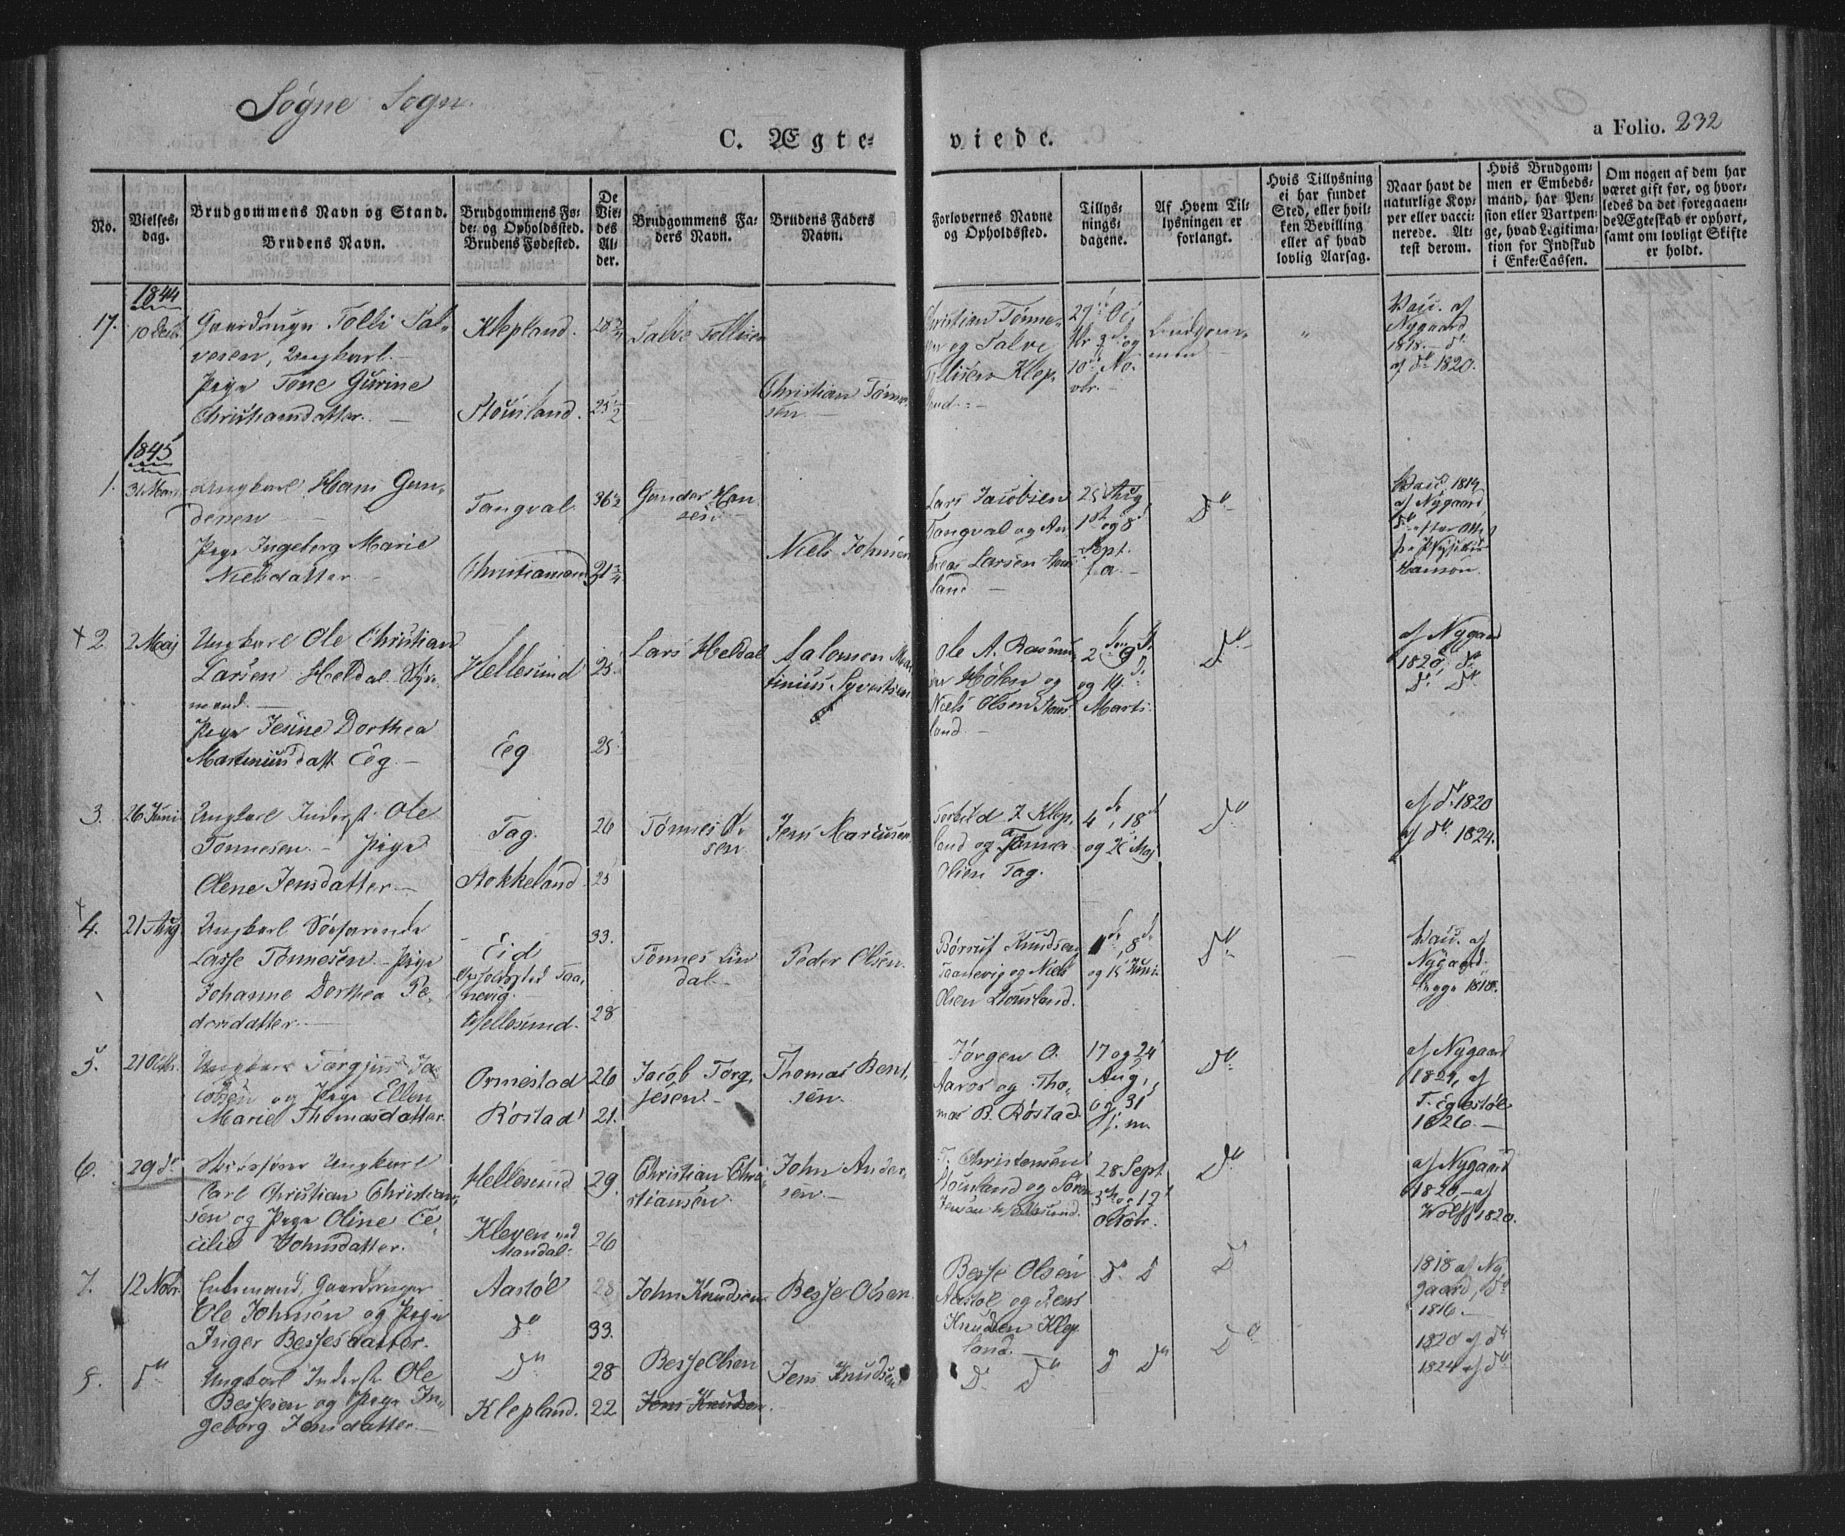 Søgne Sogn
C. Ægteviede.
a Folio. 232
No.
Vielses-
dag.
Brudgommens Navn og Stand.
Brudens Navn.
Brudgommens Fø-
de- og Opholdssted.
Brudens Fødested.
De
Vie-
des
Al-
der.
Brudgommens Fa-
ders Navn.
Brudens Faders
Navn.
Forlovernes Navne
og Opholdssted.
Tillys-
nings-
dagene.
Af Hvem Til-
lysningen er
forlangt.
Hvis Tillysning
ei har fundet
Sted, eller hvil-
ken Bevilling
eller af hvad
lovlig Aarsag.
Naar havt de
naturlige Kop-
per eller vacci-
nerede. At-
test derom.
Hvis Brudgom-
men er Embeds-
mand, har Pen-
sion eller Vartpen-
ge, hvad Legitima-
tion for Indskud
i Enke-Cassen.
Om nogen af dem har
været gift før, og hvor-
ledes da det foregaaen-
de Ægteskab er ophørt,
samt om lovligt Skifte
er holdt.
1844
17.
10 Decb
Gaardbruger Tolli Sal-
vesen, Ungkarl.
Pige Tone Gurine
Christiansdatter.
Klepland.
Stousland.
28 3/4
25 1/2
Salve Tollisen
Christian Tønne-
sen
Christian Tønne-
sen og Salve
Tollisen Klep-
land.
27de Oc-
tbr 3de og
10de No-
vbr.
Brudgom-
men
"
Vacc. af
Nygaard
1818. do
af do 1820.
1845
1.
31 Mars
Ungkarl Hans Gun-
dersen
Pige Ingeborg Marie
Nielsdatter
Tangval
Christiansand
36 1/2
21 3/4
Gunder Han-
sen
Niels Johnsen
Lars Jacobsen
Tangval og An-
dreas Larsen Stous-
land
25 Aug
1ste og 8de
Sept.
f. a.
Do
Vacc. 1819
af Nygaard,
Do efter Att.
fra Physikus
Hanson.
+ 2
2 Maj
Ungkarl Ole Christian
Larsen Heldal Styr-
mand.
Pige Jesine Dorthea
Martinius datt Eeg.
Hellesund
Eeg
25
25
Lars Heldal
Salomon Mar-
tinius Syvertsen
Ole A. Rasmus-
sen Holm og
Niels Olsen Stous-
land
2den 9de
og 14de
Marts.
Do
af Nygaard
1820, do
do do
3.
26 Juni
Ungkarl Inderst Ole
Tønnesen. Pige
Olene Jensdatter.
Tag.
Stokkeland
26
25
Tønnes Ol-
sen
Jens Marcusen
Torkild J. Klep-
land og Tønnes
Olsen Tag.
4de, 18de
og 25 Maj
Do
af do 1820
af do 1824.
+ 4.
21 Aug
Ungkarl Søefarende
Lasse Tønnesen. Pige
Johanne Dorthea Pe-
dersdatter.
Eid
Opholdssted Taa-
nevig.
Hellesund.
33.
28
Tønnes Lin-
dal.
Peder Olsen.
Børruf Knudsen
Taanevig og Niels
Olsen Stousland.
1de, 8de
og 15 Juni
Do
Vacc. af
Nygaard.
begge 1818.
5.
21 Octbr.
Ungkarl Targjus Ja-
cobsen og Pige Ellen
Marie Thomasdatter.
Ormestad
Røstad
26
21.
Jacob Torg-
jesen.
Thomas Bent-
sen.
Jørgen O.
Aaros og Tho-
mas B. Røstad.
17 og 24
Aug.,
og 31
s. m.
Do
af Nygaard
1824, af
T. Eglestøl
1826.
6.
29 do
Ungkarl
Carl Christian Christian-
sen og Pige Oline Ce-
cilie Johnsdatter.
Hellesund
Kleven ved
Mandal.
29.
26
Christian Chri-
stiansen
John Ander-
sen.
T. Christensen
Stousland og Søren
Jensen Hellesund.
28 Sept
5te og 12te
Octobr.
Do
af Nygaard
1820, af
Wolff 1820.
7.
12 Nobr.
Enkemand, Gaardbruger
Ole Johnsen og Pige
Inger Bessesdatter.
Aastøl
Do
28
33.
John Knudsen
Besse Olsen.
Besse Olsen
Aastøl og Jens
Knudsen Klep-
land.
Do Do
Do
1818 af Ny-
gaard, do
1816.
8.
do
Ungkarl Inderst Ole
Bessesen og Pige In-
geborg Jensdatter.
Do
Klepland.
28
22
Besse Olsen
Jens Knudsen
Jens Knudsen
Do Do
Do Do
Do
1820 af do
1824 af do